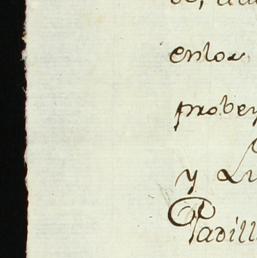 enlos
probey
y Lu
Padill